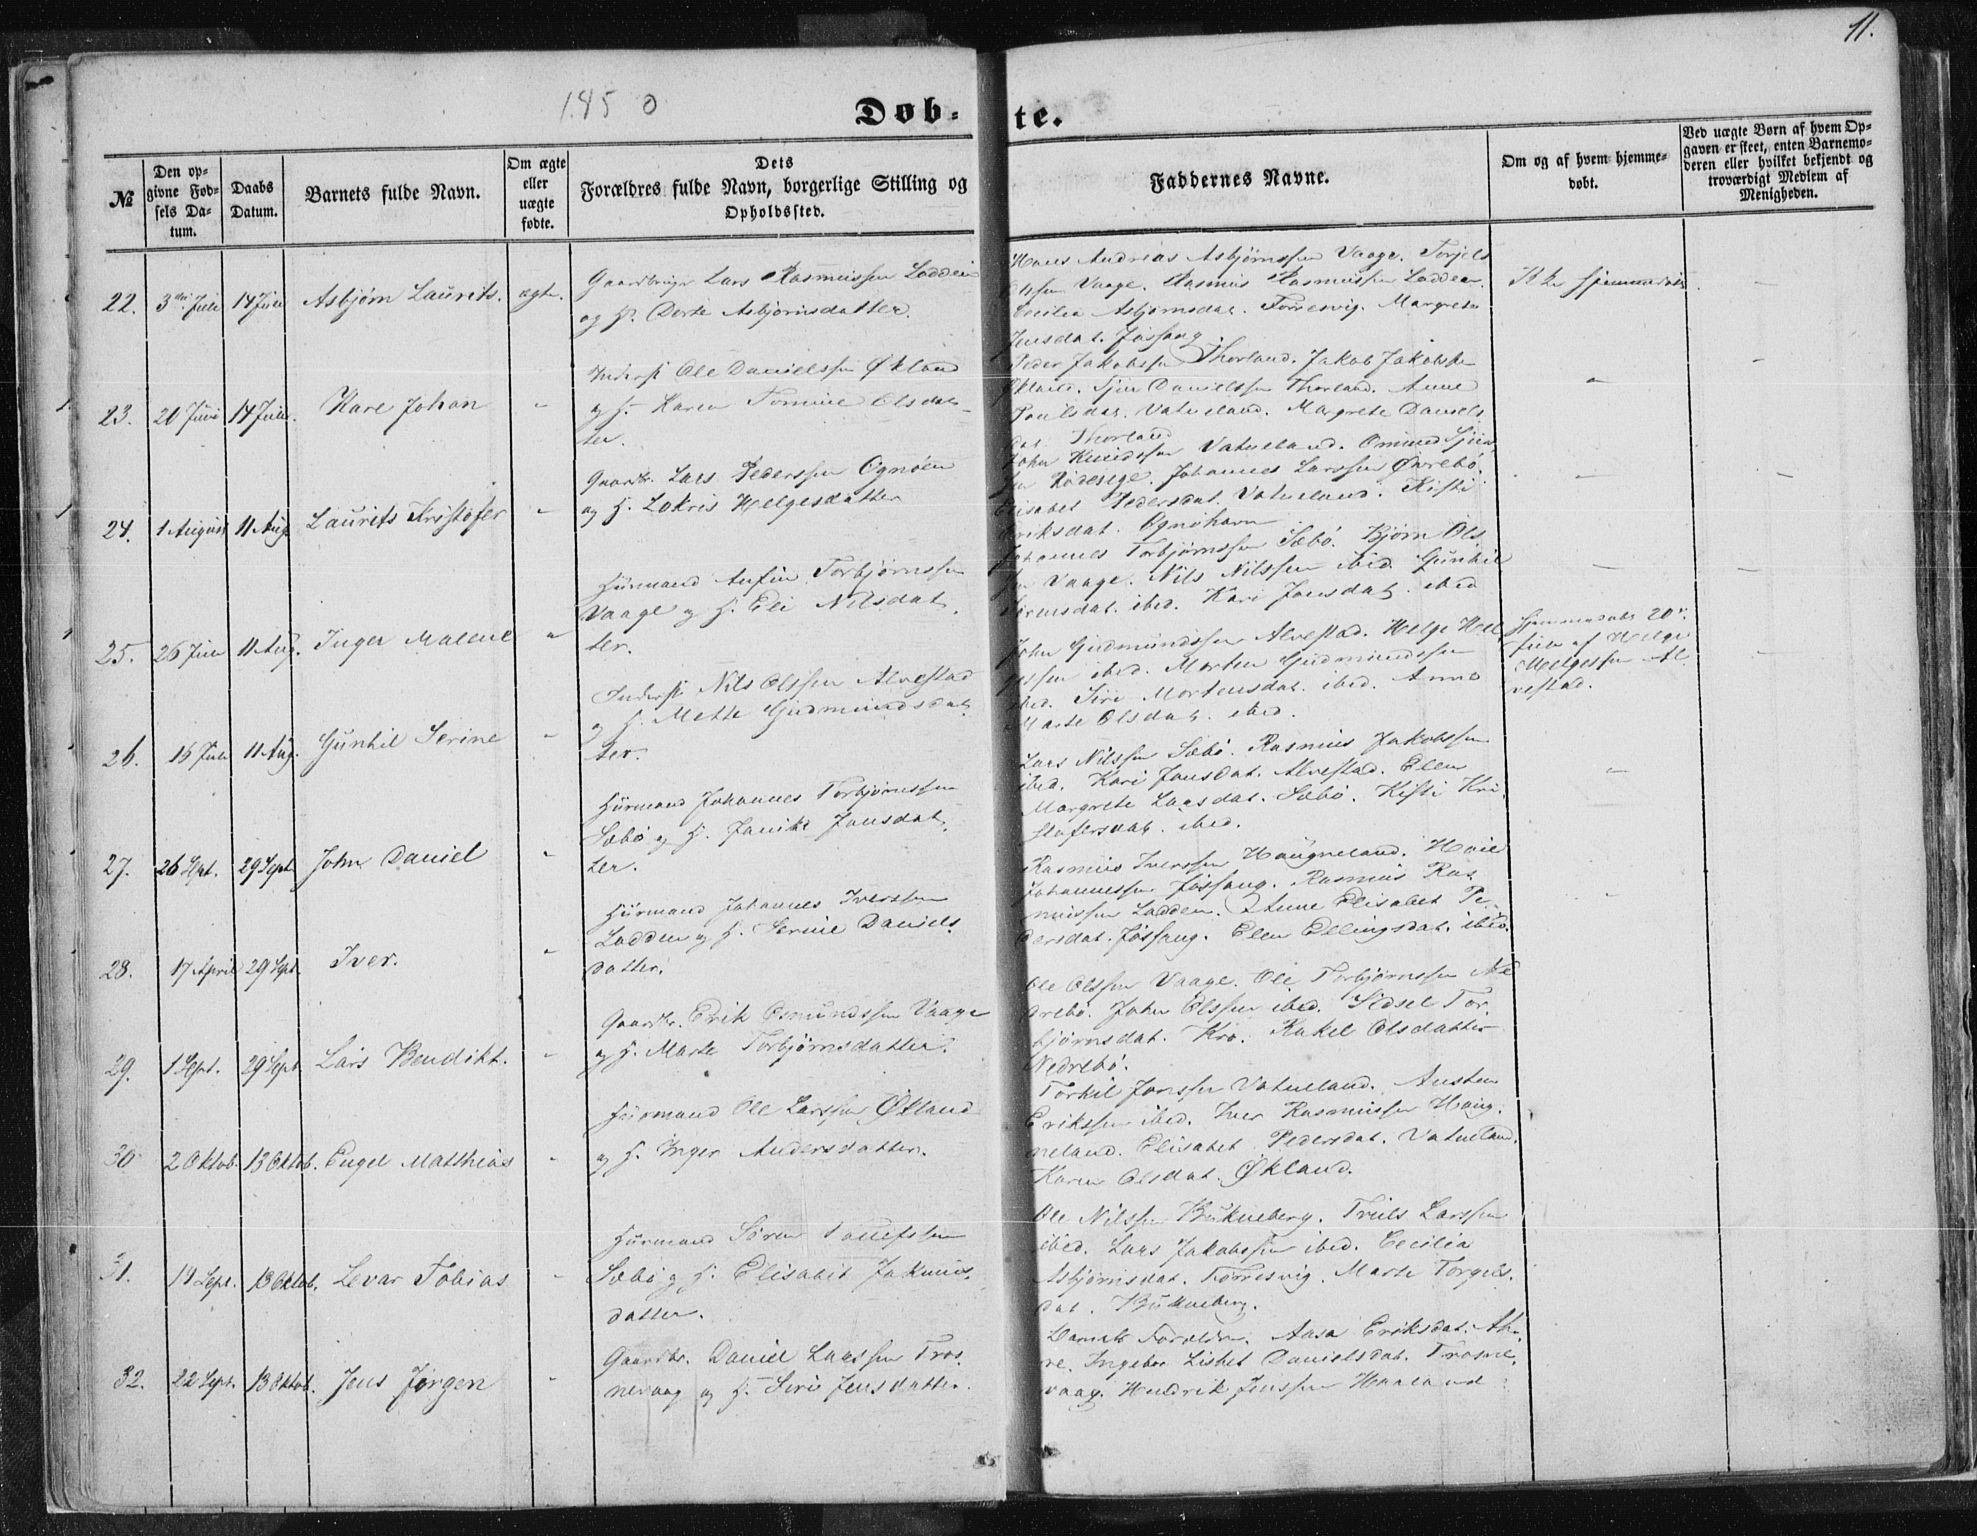 11.
1850
Døb-te.
№
Den op-
givne Fød-
sels Da-
tum.
Daabs
Datum.
Barnets fulde Navn.
Om ægte
eller
uægte
fødte.
Dets
Forældres fulde Navn, borgerlige Stilling og
Opholdssted.
Faddernes Navne.
Om og af hvem hjemme-
døbt.
Ved uægte Børn af hvem Op-
gaven er skeet, enten Barnemo-
deren eller hvilket bekjendt og
troværdigt Medlem af
Menigheden.
22. 3die Juli 14 Juli Asbjørn Laurits. ægte.
Gaardbruger Lars Rasmussen Lodden
og H. Dorte Asbjørnsdatter.
Hans Andreas Asbjørnssen Vaage. Torjels
Olssen Vaage. Rasmus Rasmussen Lodden.
Cecilia Asbjørnsdat. Førresvig. Margrete
Jensdat. Jøsfang
Ikke hjemmedøbt.
23. 20 Juni 14 Juli. Kare Johan "
Inderst Ole Danielssen Økland
og H. Karen Tomine Olsdat-
ter.
Peder Jakobssen Thorland. Jakob Jakobssen
Økland. Daniels sen Thorland. Anne
Poulsdat. Vatneland. Margrete Daniels
dat. Thorland
24. 1 August 11 Aug. Laurits Kristofer "
Gaardbr. Lars Pederssen Ognøen
og H. Lokris Helgesdatter
John Knudssen Vatneland. Omund
Johannes Larssen Øvrebø.
Elisabet Pedersdat. Vatneland. Kisti
Eriksdat. Ognøhavn
25. 26 Juli 11 Aug. Inger Malene "
Huusmand Anfin Torbjørnssen
Vaage og H. Eli Nilsdat-
ter.
Johannes Torbjørnssen Sæbø. Bjørn Ols
sen Vaage. Nils Nilssen ibid. Gunhil
ibid. Kari Jonsdat. ibid
26. 15 Juli 11 Aug. Gunhil Serine "
Inderst Nils Olssen Alvestad
og H. Mette Gudmundsdat-
ter.
John Gudmundssen Alvestad. Helge Hel
gessen ibid. Morten Gudmundssen
ibid. Siri Mortensdat. ibid. Anne
Marte Olsdat. ibid.
Hjemmedøbt 20de
Juli af Helge
Helgessen Al
vestad.
27. 26 Sept. 29 Sept. John Daniel "
Huusmand Johannes Torbjørnssen
Sæbø og H. Janike Jonsdat-
ter.
Lars Nilssen Sæbø. Rasmus Jakobssen
ibid. Kari Jonsdat. Alvestad. Ellen
Margrete Larsdat. Sæbø. Kisti Kri
stofersdat. ibid.
28. 17 April 29 Sept. Iver. "
Huusmand Johannes Iverssen
Lodden og H. Serine Daniels-
datter.
Rasmus Iverssen Haugneland.
Johannessen Jøsfang. Rasmus Ras
mussen Lodden. Anne Elisabet Pe-
dersdat. Jøsfang. Ellen Ellingsdat. ibid.
29. 1 Sept. 29 Sept Lars Bendikt. "
Gaardbr. Erik Osmundssen Vaage
og H. Marte Torbjørnsdatter.
Ole Olssen Vaage. Ole Torbjørnssen Ne
drebø. John Olssen ibid. Sidsel Tor-
bjørnsdat. Kro. Rakel Olsdatter
Nedrebø.
30 2 Oktob. 13 Oktob. Engel Matthias "
Huusmand Ole Larssen Økland
og H. Inger Andersdatter.
Torkil Jonssen Vatneland. Austen
Erikssen ibid. Iver Rasmussen Haug-
neland. Elisabet Pedersdat. Vatneland.
Karen Olsdat. Økland.
31. 14 Sept. 13 Oktob. Levar Tobias "
Huusmand Søren
Sæbø og H. Elisabet
datter.
Ole Nilssen Bukneberg. Truls Larssen
ibid. Lars Jakobssen ibid. Cecilia
Asbjørnsdat. Førresvig. Marte Torgels-
dat. Bukneberg.
32. 22 Sept. 13 Oktob. Jens Jørgen "
Gaardbr. Daniel Larssen Tros-
nevaag og H. Siri Jensdatter.
Barnets Forældre. Aasa Eriksdat.
Ingebor Lisbet Danielsdat. Trosne-
vaag. Hendrik Jenssen Haaland